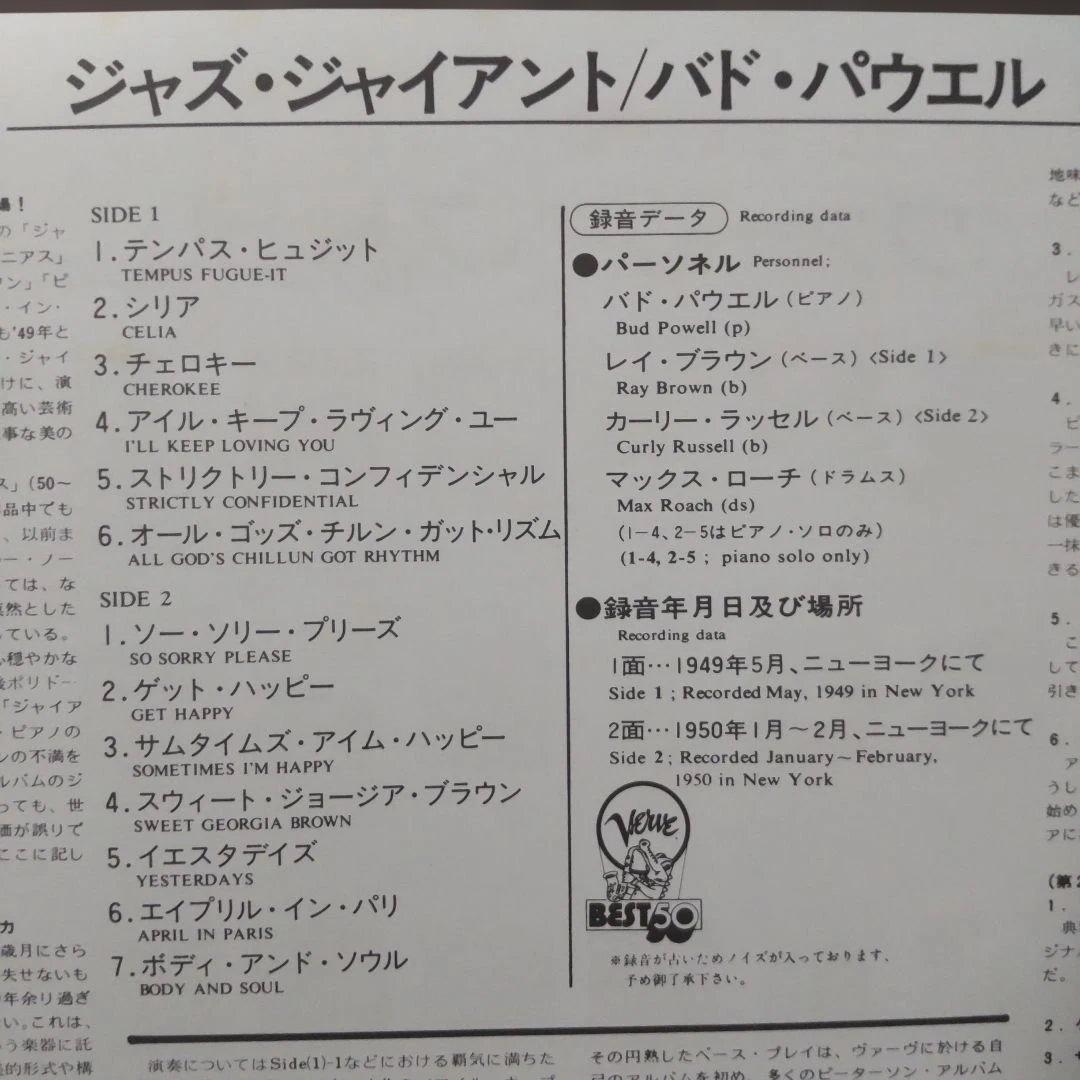 ジャズ・ジャイアント/バド・パウエル
SIDE 1
1.テンパス・ヒュジット
TEMPUS FUGUE-IT
2.シリア
CELIA
3.チェロキー
CHEROKEE
4.アイル・キープ・ラヴィング・ユー
I'LL KEEP LOVING YOU
5.ストリクトリー・コンフィデンシャル
STRICTLY CONFIDENTIAL
6.オール・ゴッズ・チルン・ガット・リズム
ALL GOD'S CHILLUN GOT RHYTHM
SIDE 2
1.ソー・ソリー・プリーズ
SO SORRY PLEASE
2.ゲット・ハッピー
GET HAPPY
3.サムタイムズ・アイム・ハッピー
SOMETIMES I'M HAPPY
4.スウィート・ジョージア・ブラウン
SWEET GEORGIA BROWN
5.イエスタデイズ
YESTERDAYS
6.エイプリル・イン・パリ
APRIL IN PARIS
7.ボディ・アンド・ソウル
BODY AND SOUL
録音データ Recording data
●パーソネル Personnel;
バド・パウエル(ピアノ)
Bud Powell (p)
レイ・ブラウン(ベース)〈Side 1〉
Ray Brown (b)
カーリー・ラッセル(ベース)〈Side 2〉
Curly Russell (b)
マックス・ローチ(ドラムス)
Max Roach (ds)
(1-4、2-5はピアノ・ソロのみ)
(1-4, 2-5 ; piano solo only)
●録音年月日及び場所
Recording data
1面…1949年5月、ニューヨークにて
Side 1 ; Recorded May, 1949 in New York
2面…1950年1月〜2月、ニューヨークにて
Side 2 ; Recorded January~February,
1950 in New York
Verve
BEST 50
※録音が古いためノイズが入っております、
予め御了承下さい。
演奏についてはSide(1)-1などにおける覇気に満ちた
その円熟したベース・プレイは、ヴァーヴに於ける自
己のアルバムを初め、多くのピーターソン・アルバム
の「ジャ
ニアス」
ウン」「ピ
・イン・
も'49年と
・ジャイ
けに、演
高い芸術
事な美の
ス」(50〜
品中でも
、以前ま
ー・ノー
ては、な
然とした
ている。
穏やかな
後ポリドー
「ジャイア
・ピアノの
ンの不満を
ルバムのジ
っても、世
価が誤りで
ここに記し
力
歳月にさら
失せないも
年余り過ぎ
い。これは、
う楽器に託
的形式や構
地味
など
3.
レ
ガス
早い
きに
4.
ピ
ラー
こま
した
は優
一抹
きる
5.
こ
して
引き
6.
ア
うし
始め
アに
(第2
1.
典
ジナ
だ。
2.
3.